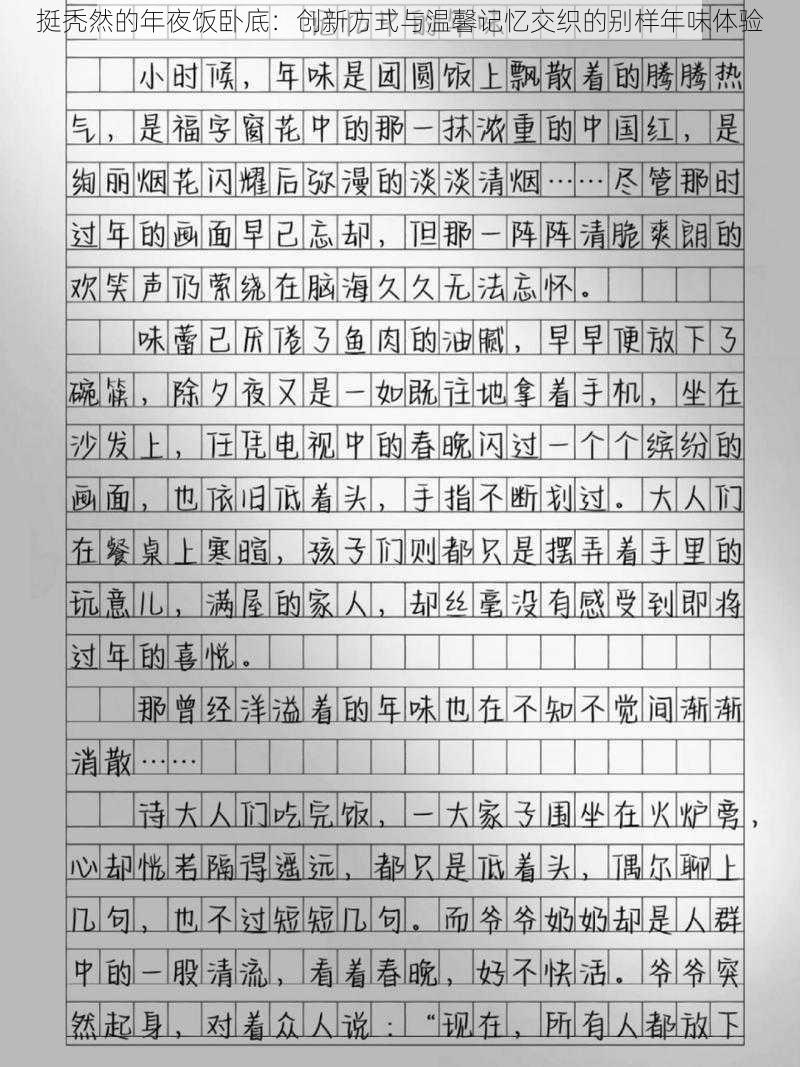 挺秃然的年夜饭卧底：创新方式与温馨记忆交织的别样年味体验
小时候，年味是团圆饭上飘散着的腾腾热
气，是福字窗花中的那一抹浓重的中国红，是
绚丽烟花闪耀后弥漫的淡淡清烟……尽管那时
过年的画面早已忘却，但那一阵阵清脆爽朗的
欢笑声仍萦绕在脑海久久无法忘怀。
味蕾已厌倦了鱼肉的油腻，早早便放下了
碗筷，除夕夜又是一如既往地拿着手机，坐在
沙发上，任凭电视中的春晚闪过一个个缤纷的
画面，也依旧低着头，手指不断划过。大人们
在餐桌上寒暄，孩子们则都只是摆弄着手里的
玩意儿，满屋的家人，却丝毫没有感受到即将
过年的喜悦。
那曾经洋溢着的年味也在不知不觉间渐渐
消散……
待大人们吃完饭，一大家子围坐在火炉旁，
心却恍若隔得遥远，都只是低着头，偶尔聊上
几句，也不过短短几句。而爷爷奶奶却是人群
中的一股清流，看着春晚，好不快活。爷爷突
然起身，对着众人说：“现在，所有人都放下